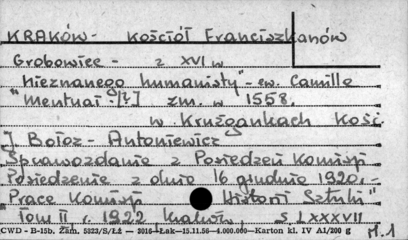 KRAKÓW - Kościół Franciszkanów
Grobowiec - z XVI w
"nieznanego humanisty" - ew. Camille
"Mentuai :[?] zm. w 1558.
w Krużgankach Kość.
J Bołoz - Antoniewicz
Sprawozdanie z Posiedzeń Komisji
Posiedzenie z dnia 16 grudnia 1920r. -
"Prace Komisji Historii Sztuki"
Tom II, r. 1922 Kraków, S. LXXXVII
CWD - B-15b. Zam. 5823/S/Łż — 2016 - Łak—15.11.56—4.000.000—Karton kl. IV A1/200 g
M.1